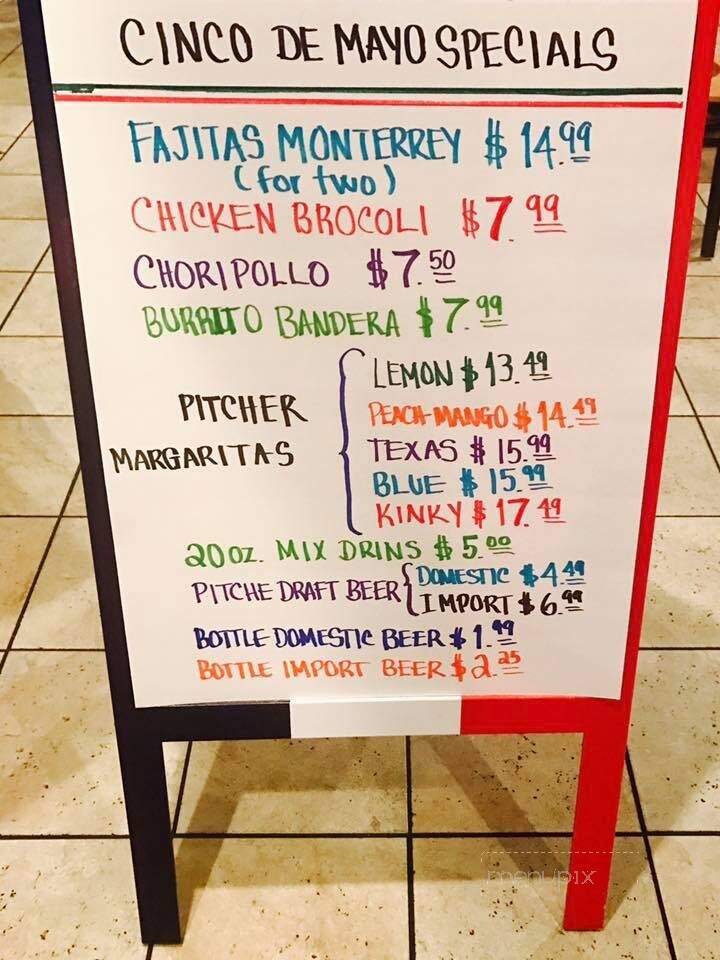 CINCO DE MAYO SPECIALS
FAJITAS MONTERREY $14.99
(for two)
CHICKEN BROCOLI $7.99
CHORIPOLLO $7.50
BURRITO BANDERA $7.99
PITCHER MARGARITAS
LEMON $13.49
PEACH-MANGO $14.49
TEXAS $15.99
BLUE $15.99
KINKY $17.49
20 OZ. MIX DRINS $5.00
PITCHE DRAFT BEER
DOMESTIC $4.49
IMPORT $6.99
BOTTLE DOMESTIC BEER $1.99
BOTTLE IMPORT BEER $2.25
menupix